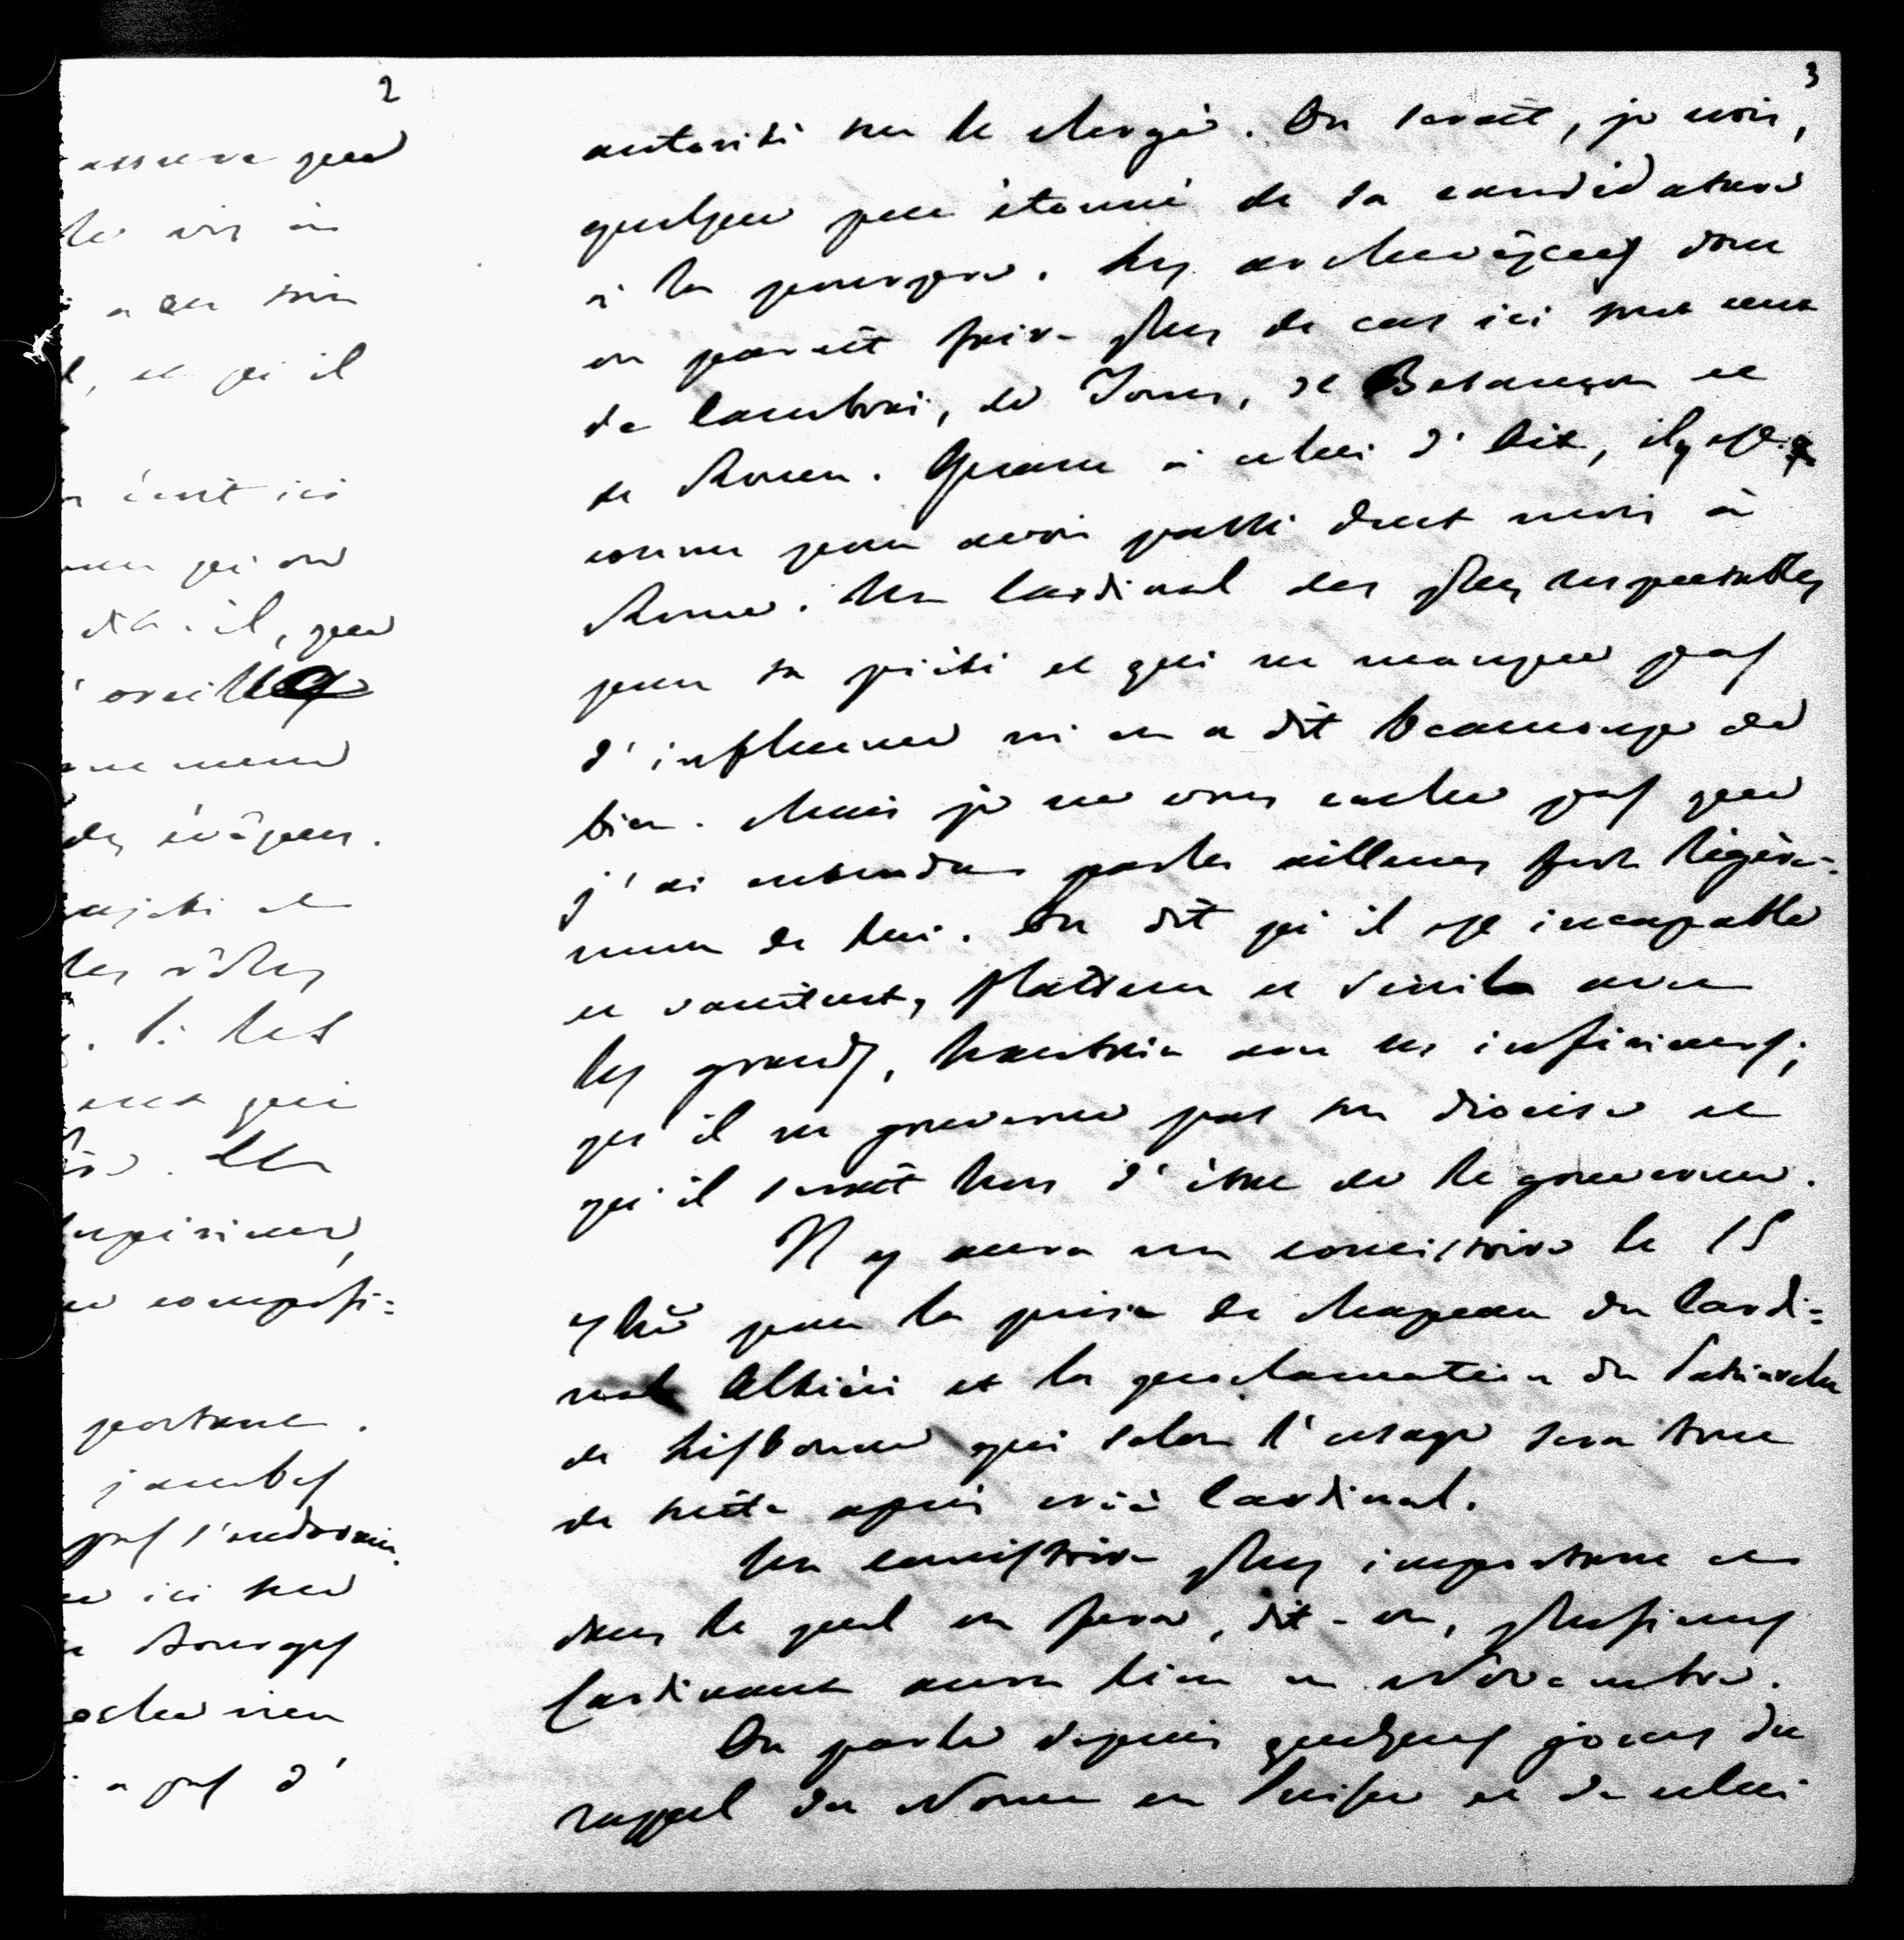 2
assure que
le vis à
a eu soin
, et qu'il
écrit ici
qu'on
dit-il, que
oreille
des évêques.
les rôles
qui
supérieur,
composi=
portant.
jambes
pas l'endroit
ici
Bourges
a pas d'
3
autorité sur le clergé. On serait, je crois,
quelque peu étonné de sa candidature
à la pourpre. Les archevêques dont
on paraît faire plus de cas ici sont ceux
de Cambrai, de Tours, de Besançon et
de Rouen. Quant à celui d'Aix, il y est
connu pour avoir passé deux mois à
Rome. Un Cardinal des plus respectables
pour sa piété et qui ne manque pas
d'influence m'en a dit beaucoup de
bien. Mais je ne vous cache pas que
j'ai entendu parler ailleurs fort légère=
ment de lui. On dit qu'il est incapable
et vaniteux, flatteur et servile avec
les grands, hautain avec ses inférieurs;
qu'il ne gouverne pas son diocèse et
qu'il serait hors d'état de le gouverner.
Il y aura un consistoire le 15
7bre pour la prise de chapeau du Cardi=
nal Altiéri et la proclamation du Patriarche
de Lisbonne qui selon l'usage sera tout
de suite après créé Cardinal.
Un consistoire plus important et
dans le quel on fera, dit-on, plusieurs
Cardinaux aura lieu en Novembre.
On parle depuis quelques jours du
rappel du Nonce en Suisse et de celui